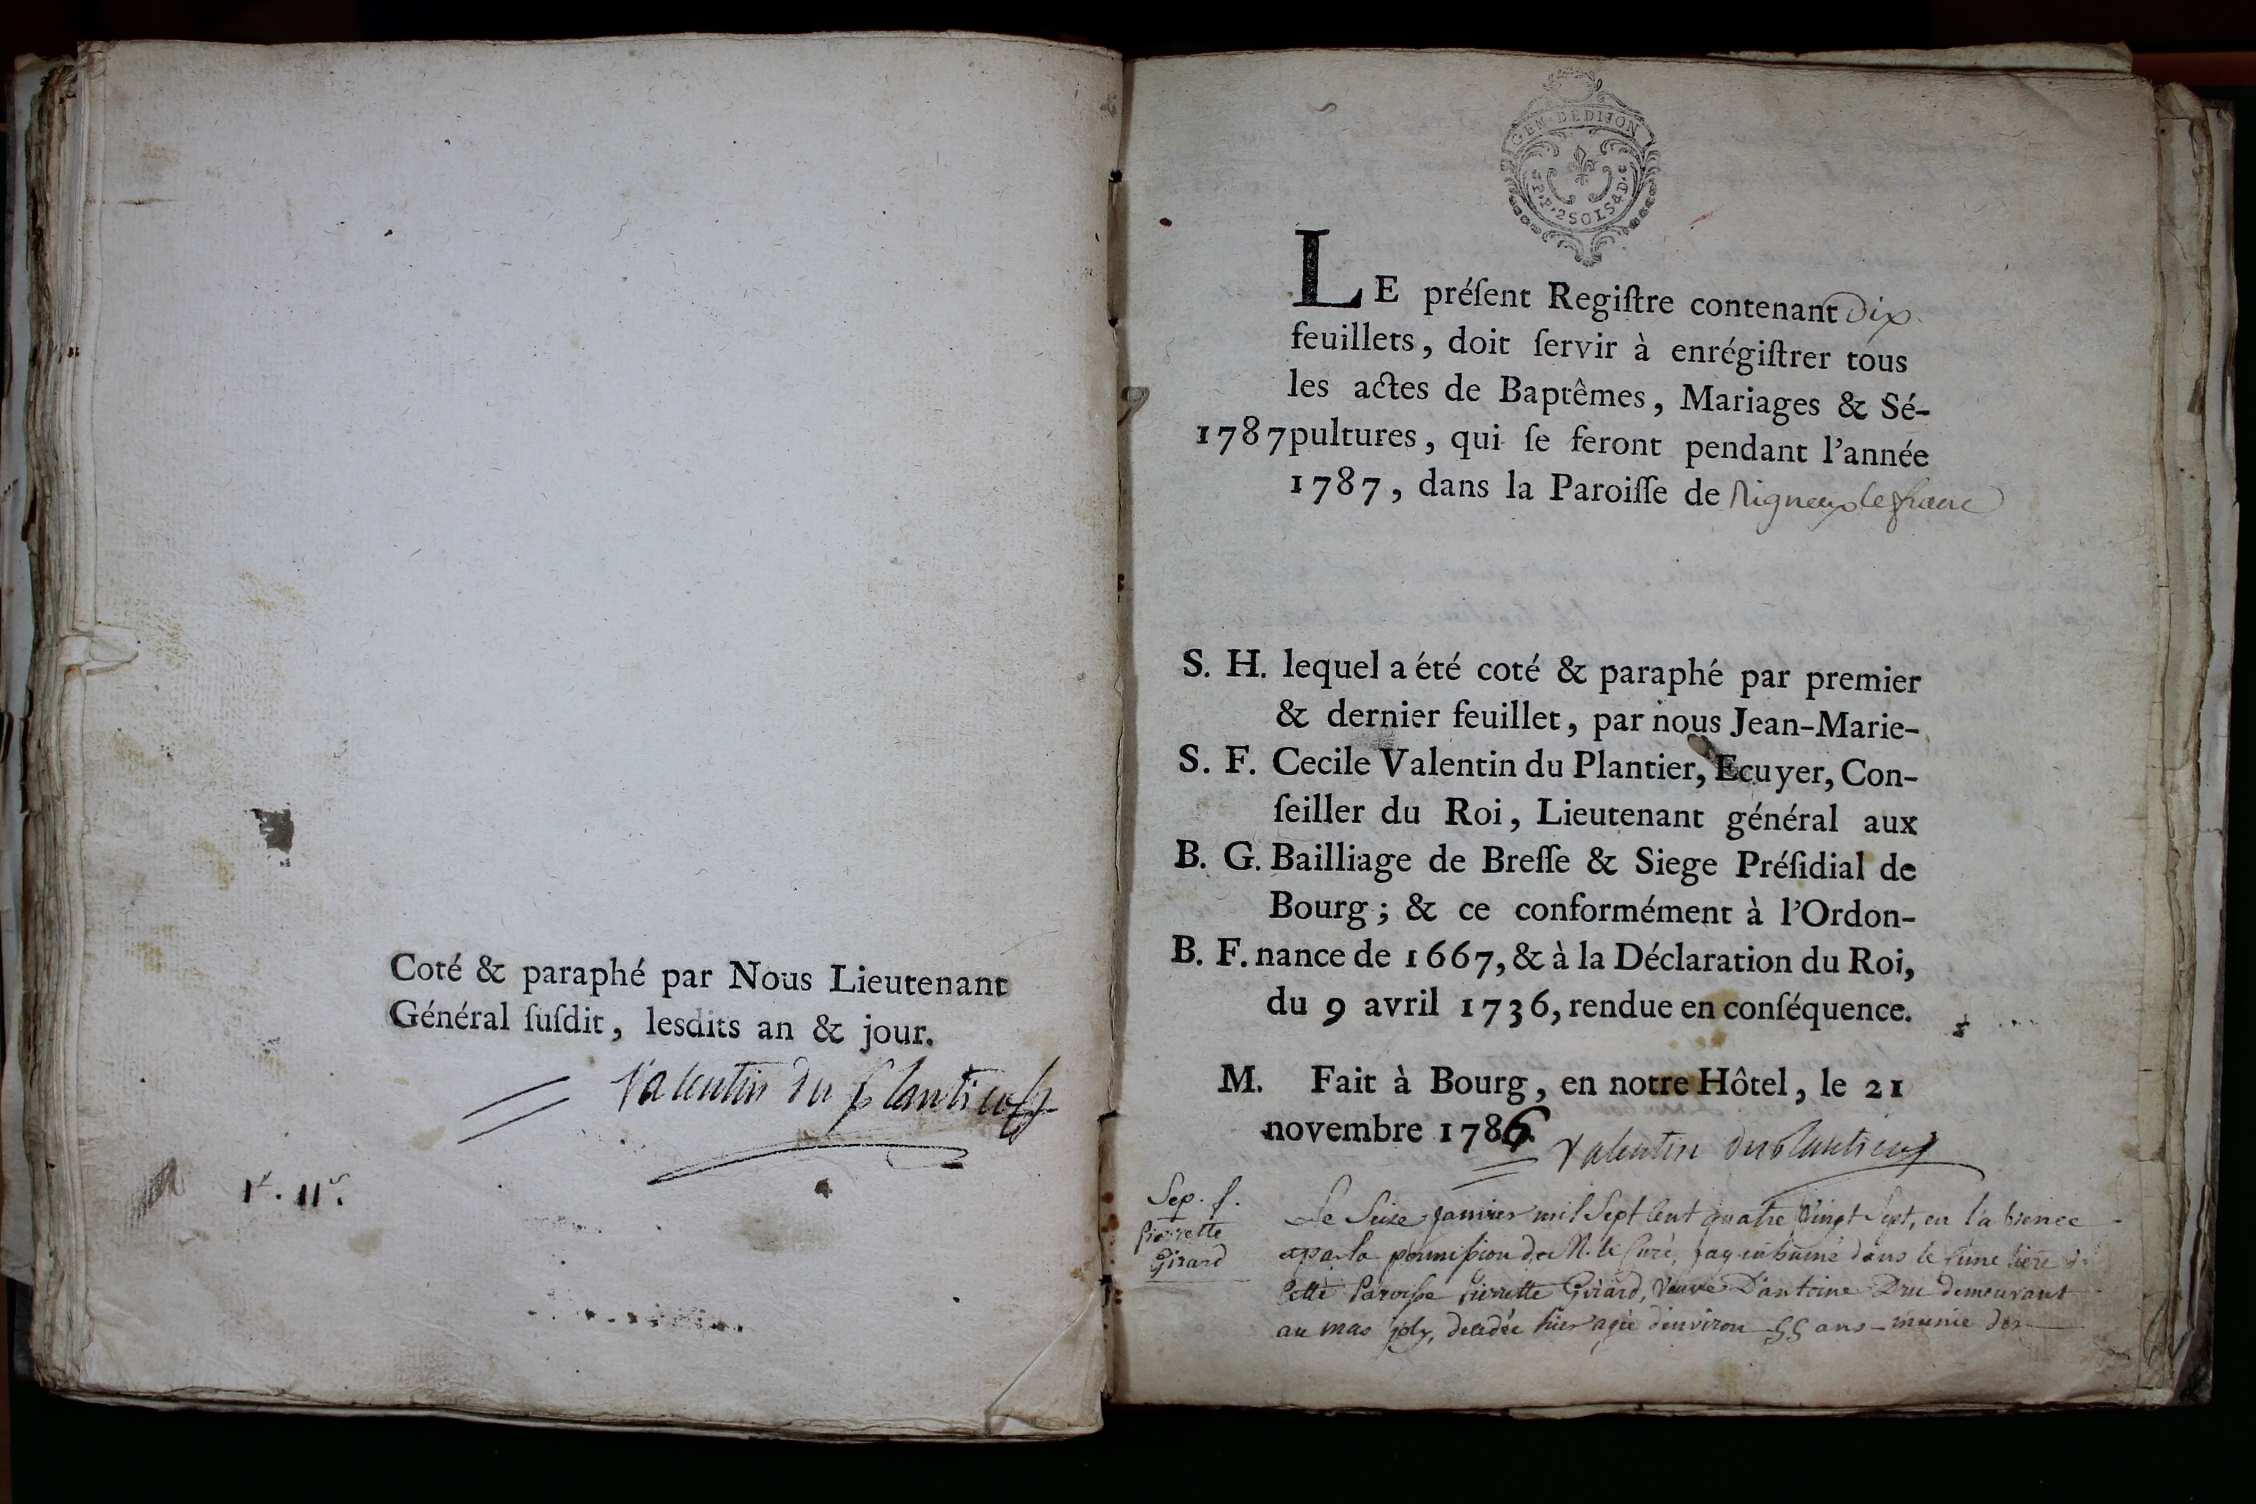 Coté & paraphé par Nous Lieutenant
Général ſuſdit, lesdits an & jour.
Valentin du plantier
GEN. DE DIJON
2 SOLS
LE préſent Regiſtre contenant Dix
feuillets, doit ſervir à enrégiſtrer tous
les actes de Baptêmes, Mariages & Sé-
1787 pultures, qui ſe feront pendant l'année
1787, dans la Paroiſſe de Rigneux le franc
S. H. lequel a été coté & paraphé par premier
& dernier feuillet, par nous Jean-Marie-
S. F. Cecile Valentin du Plantier, Ecuyer, Con-
ſeiller du Roi, Lieutenant général aux
B. G. Bailliage de Breſſe & Siege Préſidial de
Bourg; & ce conformément à l'Ordon-
B. F. nance de 1667, & à la Déclaration du Roi,
du 9 avril 1736, rendue en conſéquence.
M. Fait à Bourg, en notre Hôtel, le 21
novembre 1786.
Valentin duplantier
Sep. f.
pierrette
Girard
Le Seize janvier mil Sept Cent quatre vingt Sept, en l'absence
et par la permission de M. le Curé, j'ay inhumé dans le Cimetiere de
Cette Paroisse pierrette Girard, veuve D'antoine Dru demeurant
au mas joly, decedée hier agée d'environ 55 ans munie des